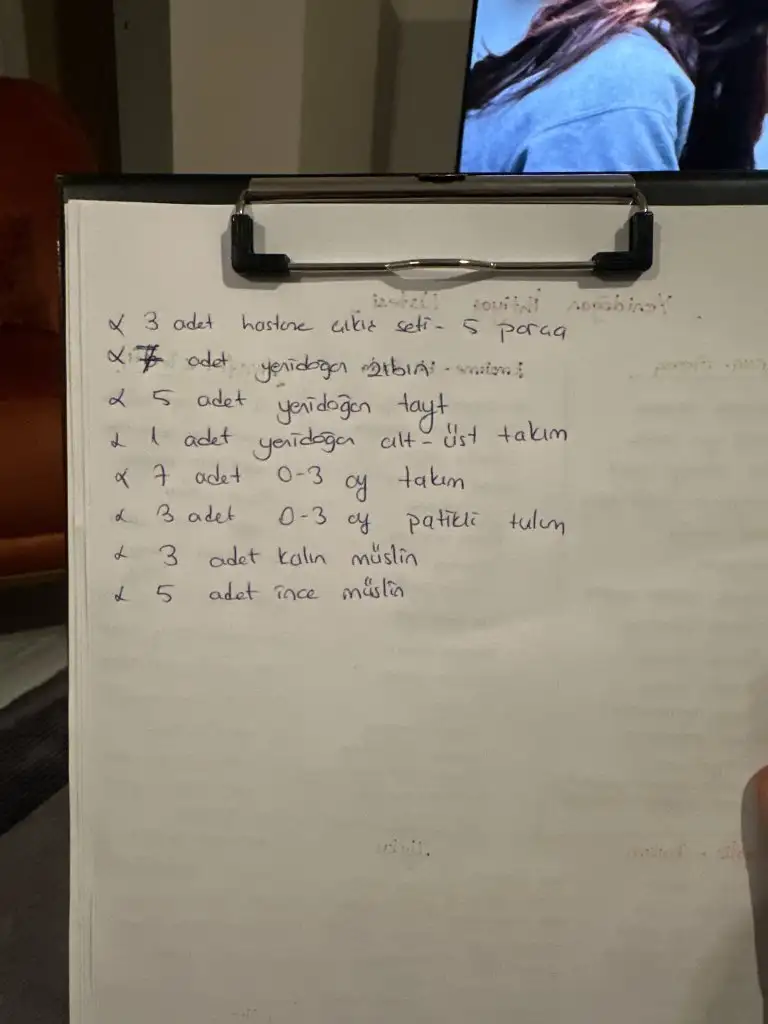 Yenidoğan İhtiyaç Listesi
α 3 adet hastane çıkış seti - 5 parça
α 7 adet yenidoğan zıbın
α 5 adet yenidoğan tayt
α 1 adet yenidoğan alt-üst takım
α 7 adet 0-3 ay takım
α 3 adet 0-3 ay patikli tulum
α 3 adet kalın müslin
α 5 adet ince müslin